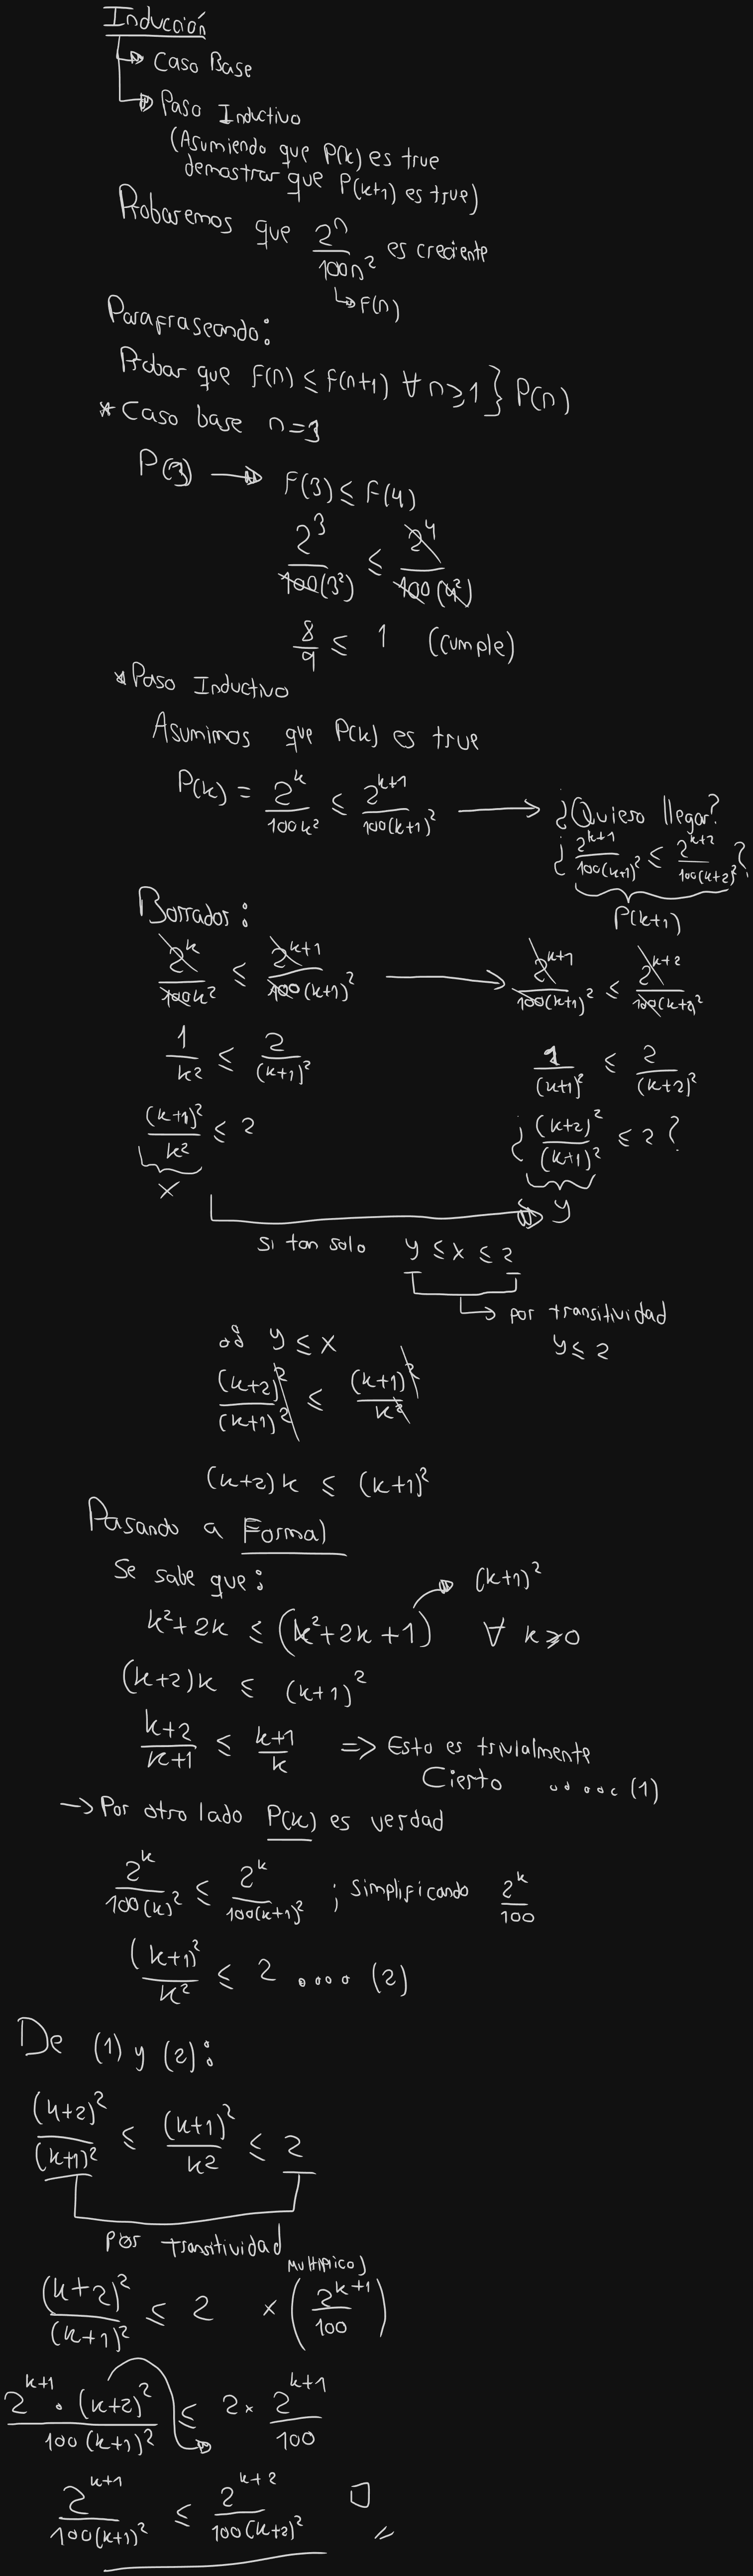 Inducción
→ Caso Base
→ Paso Inductivo
(Asumiendo que P(k) es true
demostrar que P(k+1) es true)
Probaremos que 2^n/100n² es creciente
↳ F(n)
Parafraseando:
Probar que F(n) ≤ F(n+1) ∀ n ≥ 1 } P(n)
* Caso base n=3
P(3) → F(3) ≤ F(4)
2³/100(3²) ≤ 2⁴/100(4²)
8/9 ≤ 1 (cumple)
* Paso Inductivo
Asumimos que P(k) es true
P(k) = 2^k/100k² ≤ 2^(k+1)/100(k+1)² → ¿Quiero llegar?
¿ 2^(k+1)/100(k+1)² ≤ 2^(k+2)/100(k+2)² ?
P(k+1)
Borrador:
2^k/100k² ≤ 2^(k+1)/100(k+1)² → 2^(k+1)/100(k+1)² ≤ 2^(k+2)/100(k+2)²
1/k² ≤ 2/(k+1)² 1/(k+1)² ≤ 2/(k+2)²
(k+1)²/k² ≤ 2 ¿ (k+2)²/(k+1)² ≤ 2 ?
x y
Si tan solo y ≤ x ≤ 2
→ por transitividad
y ≤ 2
∴ y ≤ x
(k+2)²/(k+1)² ≤ (k+1)²/k²
(k+2)k ≤ (k+1)²
Pasando a Formal
Se sabe que: (k+1)²
k²+2k ≤ (k²+2k+1) ∀ k ≥ 0
(k+2)k ≤ (k+1)²
k+2/k+1 ≤ k+1/k => Esto es trivialmente
Cierto ..... (1)
→ Por otro lado P(k) es verdad
2^k/100(k)² ≤ 2^k/100(k+1)² ; simplificando 2^k/100
(k+1)²/k² ≤ 2 .... (2)
De (1) y (2):
(k+2)²/(k+1)² ≤ (k+1)²/k² ≤ 2
por transitividad
Multiplico)
(k+2)²/(k+1)² ≤ 2 × (2^(k+1)/100)
2^(k+1) · (k+2)²/100(k+1)² ≤ 2 × 2^(k+1)/100
2^(k+1)/100(k+1)² ≤ 2^(k+2)/100(k+2)² □